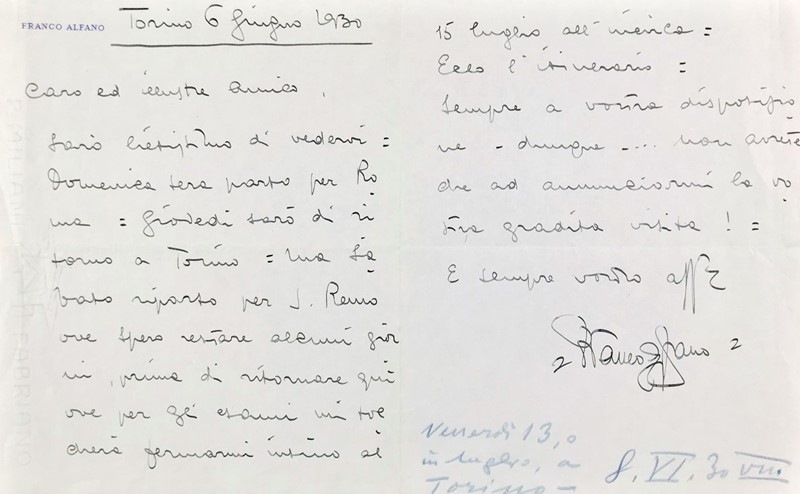 FRANCO ALFANO
Torino 6 Giugno 1930
Caro ed illustre Amico,
Sarò lietissimo di vedervi =
Domenica sera parto per Ro
ma = Giovedì sarò di ri
torno a Torino = Ma Sa
bato riparto per S. Remo
ove spero restare alcuni gior
ni, prima di ritornare quì
ove per gli esami mi toc
cherà fermarmi insino al
15 luglio all'incirca =
Ecco l'itinerario =
Sempre a vostra disposizio
ne - dunque -... non avrete
che ad annunciarmi la vo
stra gradita visita ! =
E sempre vostro aff
Franco Alfano
Venerdì 13, o
in luglio, a
Torino -
8. VI. 30